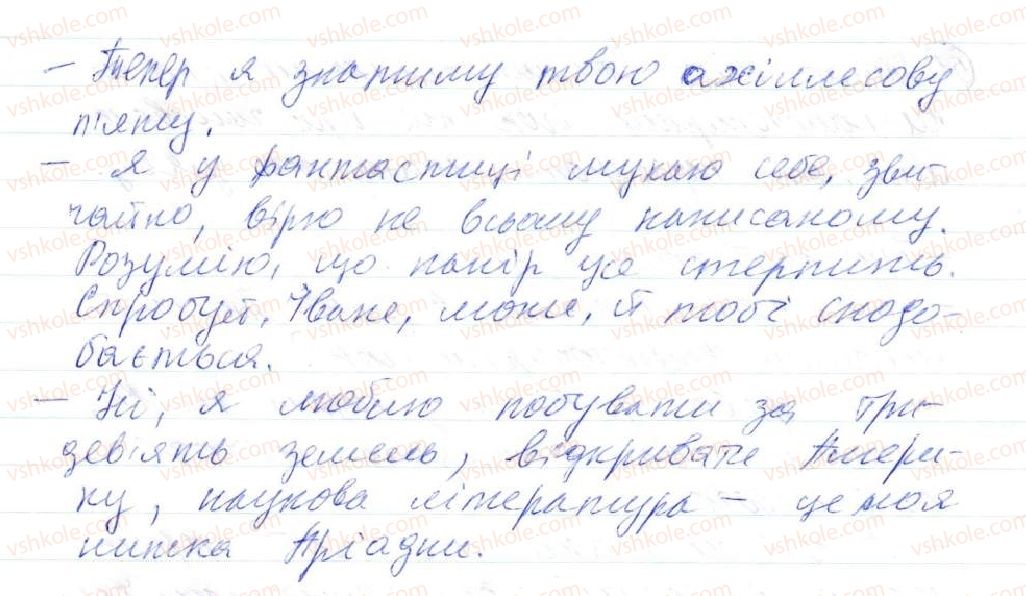 – Тепер я знатиму твою ахіллесову
п'яту.
– Я у фантастиці шукаю себе, зви-
чайно, вірю не всьому написаному.
Розумію, що папір усе стерпить.
Спробуй, Іване, може, й тобі сподо-
бається.
– Ні, я люблю побувати за три-
дев'ять земель, відкривати Амери-
ку, наукова література – це моя
нитка Аріадни.